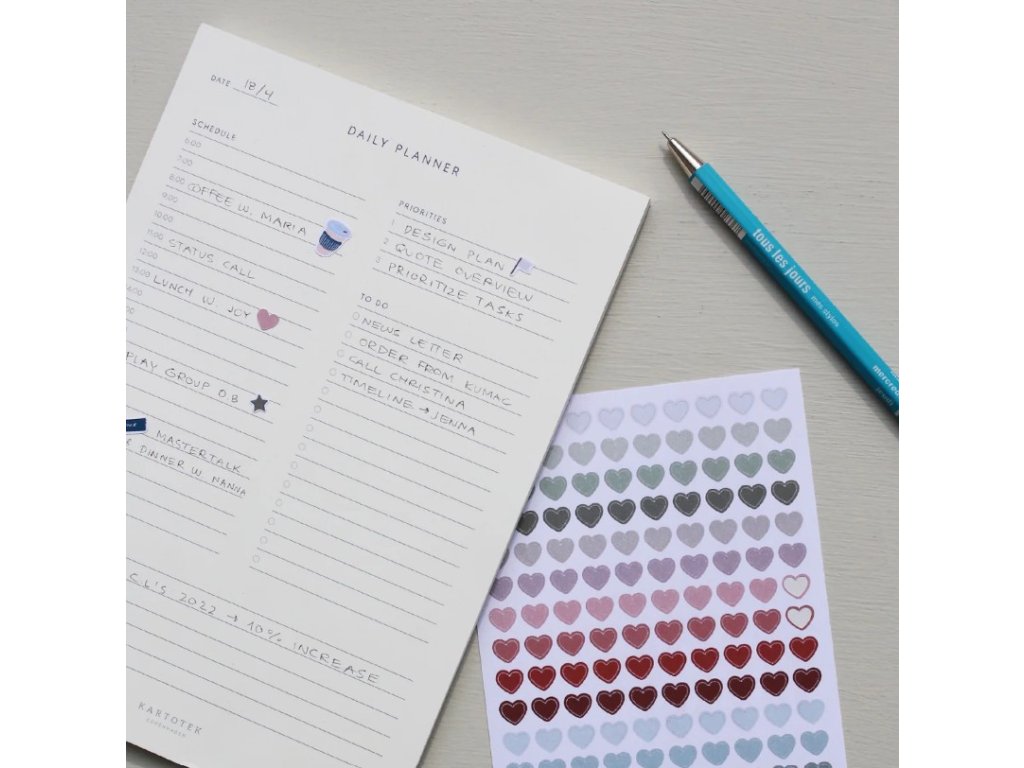 DATE 18/4
DAILY PLANNER
SCHEDULE
6:00
7:00
8:00 COFFEE W. MARIA
9:00
10:00
11:00 STATUS CALL
12:00
13:00 LUNCH W. JOY
PLAY GROUP O.B
MASTERTALK
DINNER W. NANNA
PRIORITIES
1 DESIGN PLAN
2 QUOTE OVERVIEW
3 PRIORITIZE TASKS
TO DO
NEWS LETTER
ORDER FROM KUMAC
CALL CHRISTINA
TIMELINE → JENNA
C.L'S 2022 → 10% INCREASE
KARTOTEK
COPENHAGEN
tous les jours
mes stylos